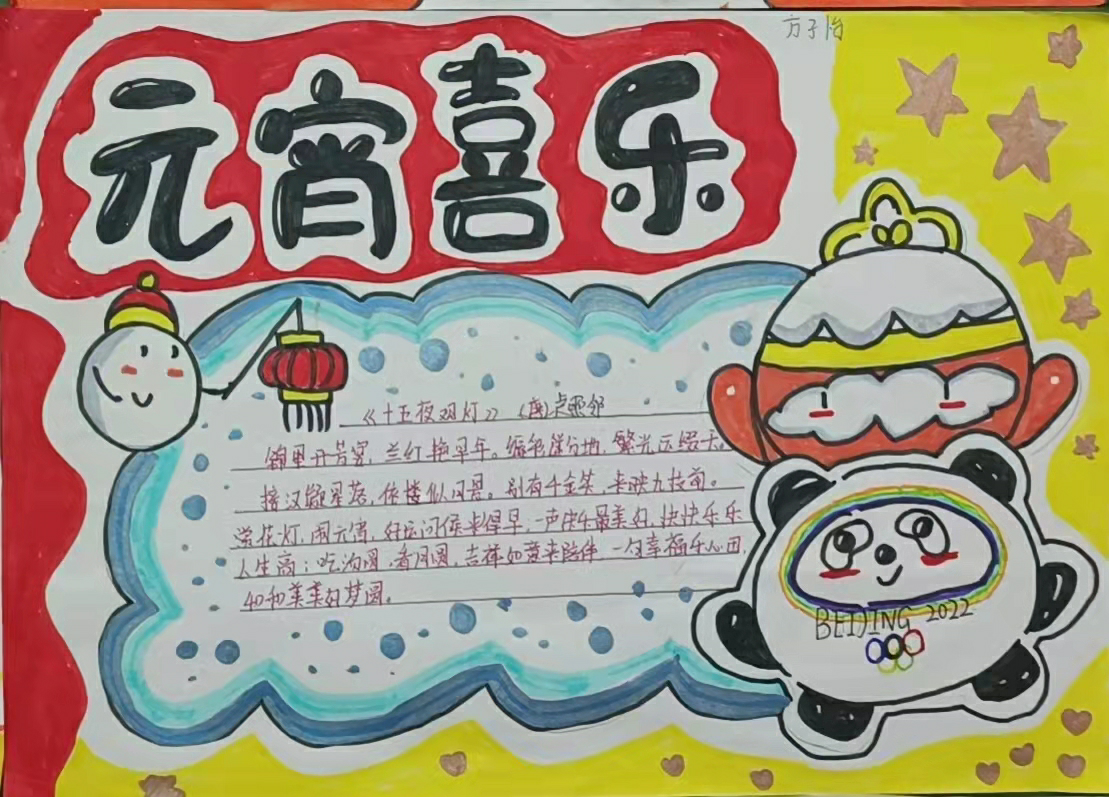 方子怡
元宵喜乐
《十五夜观灯》 (唐)卢照邻
锦里开芳宴，兰红艳早年。缛彩遥分地，繁光远缀天。
接汉疑星落，依楼似月悬。别有千金笑，来映九枝前。
赏花灯，闹元宵，好运问候来得早，一声快乐最美好，快快乐乐
人生高；吃汤圆，看月圆，吉祥如意来陪伴，一句幸福乐心田，
和和美美好梦圆。
BEIJING 2022